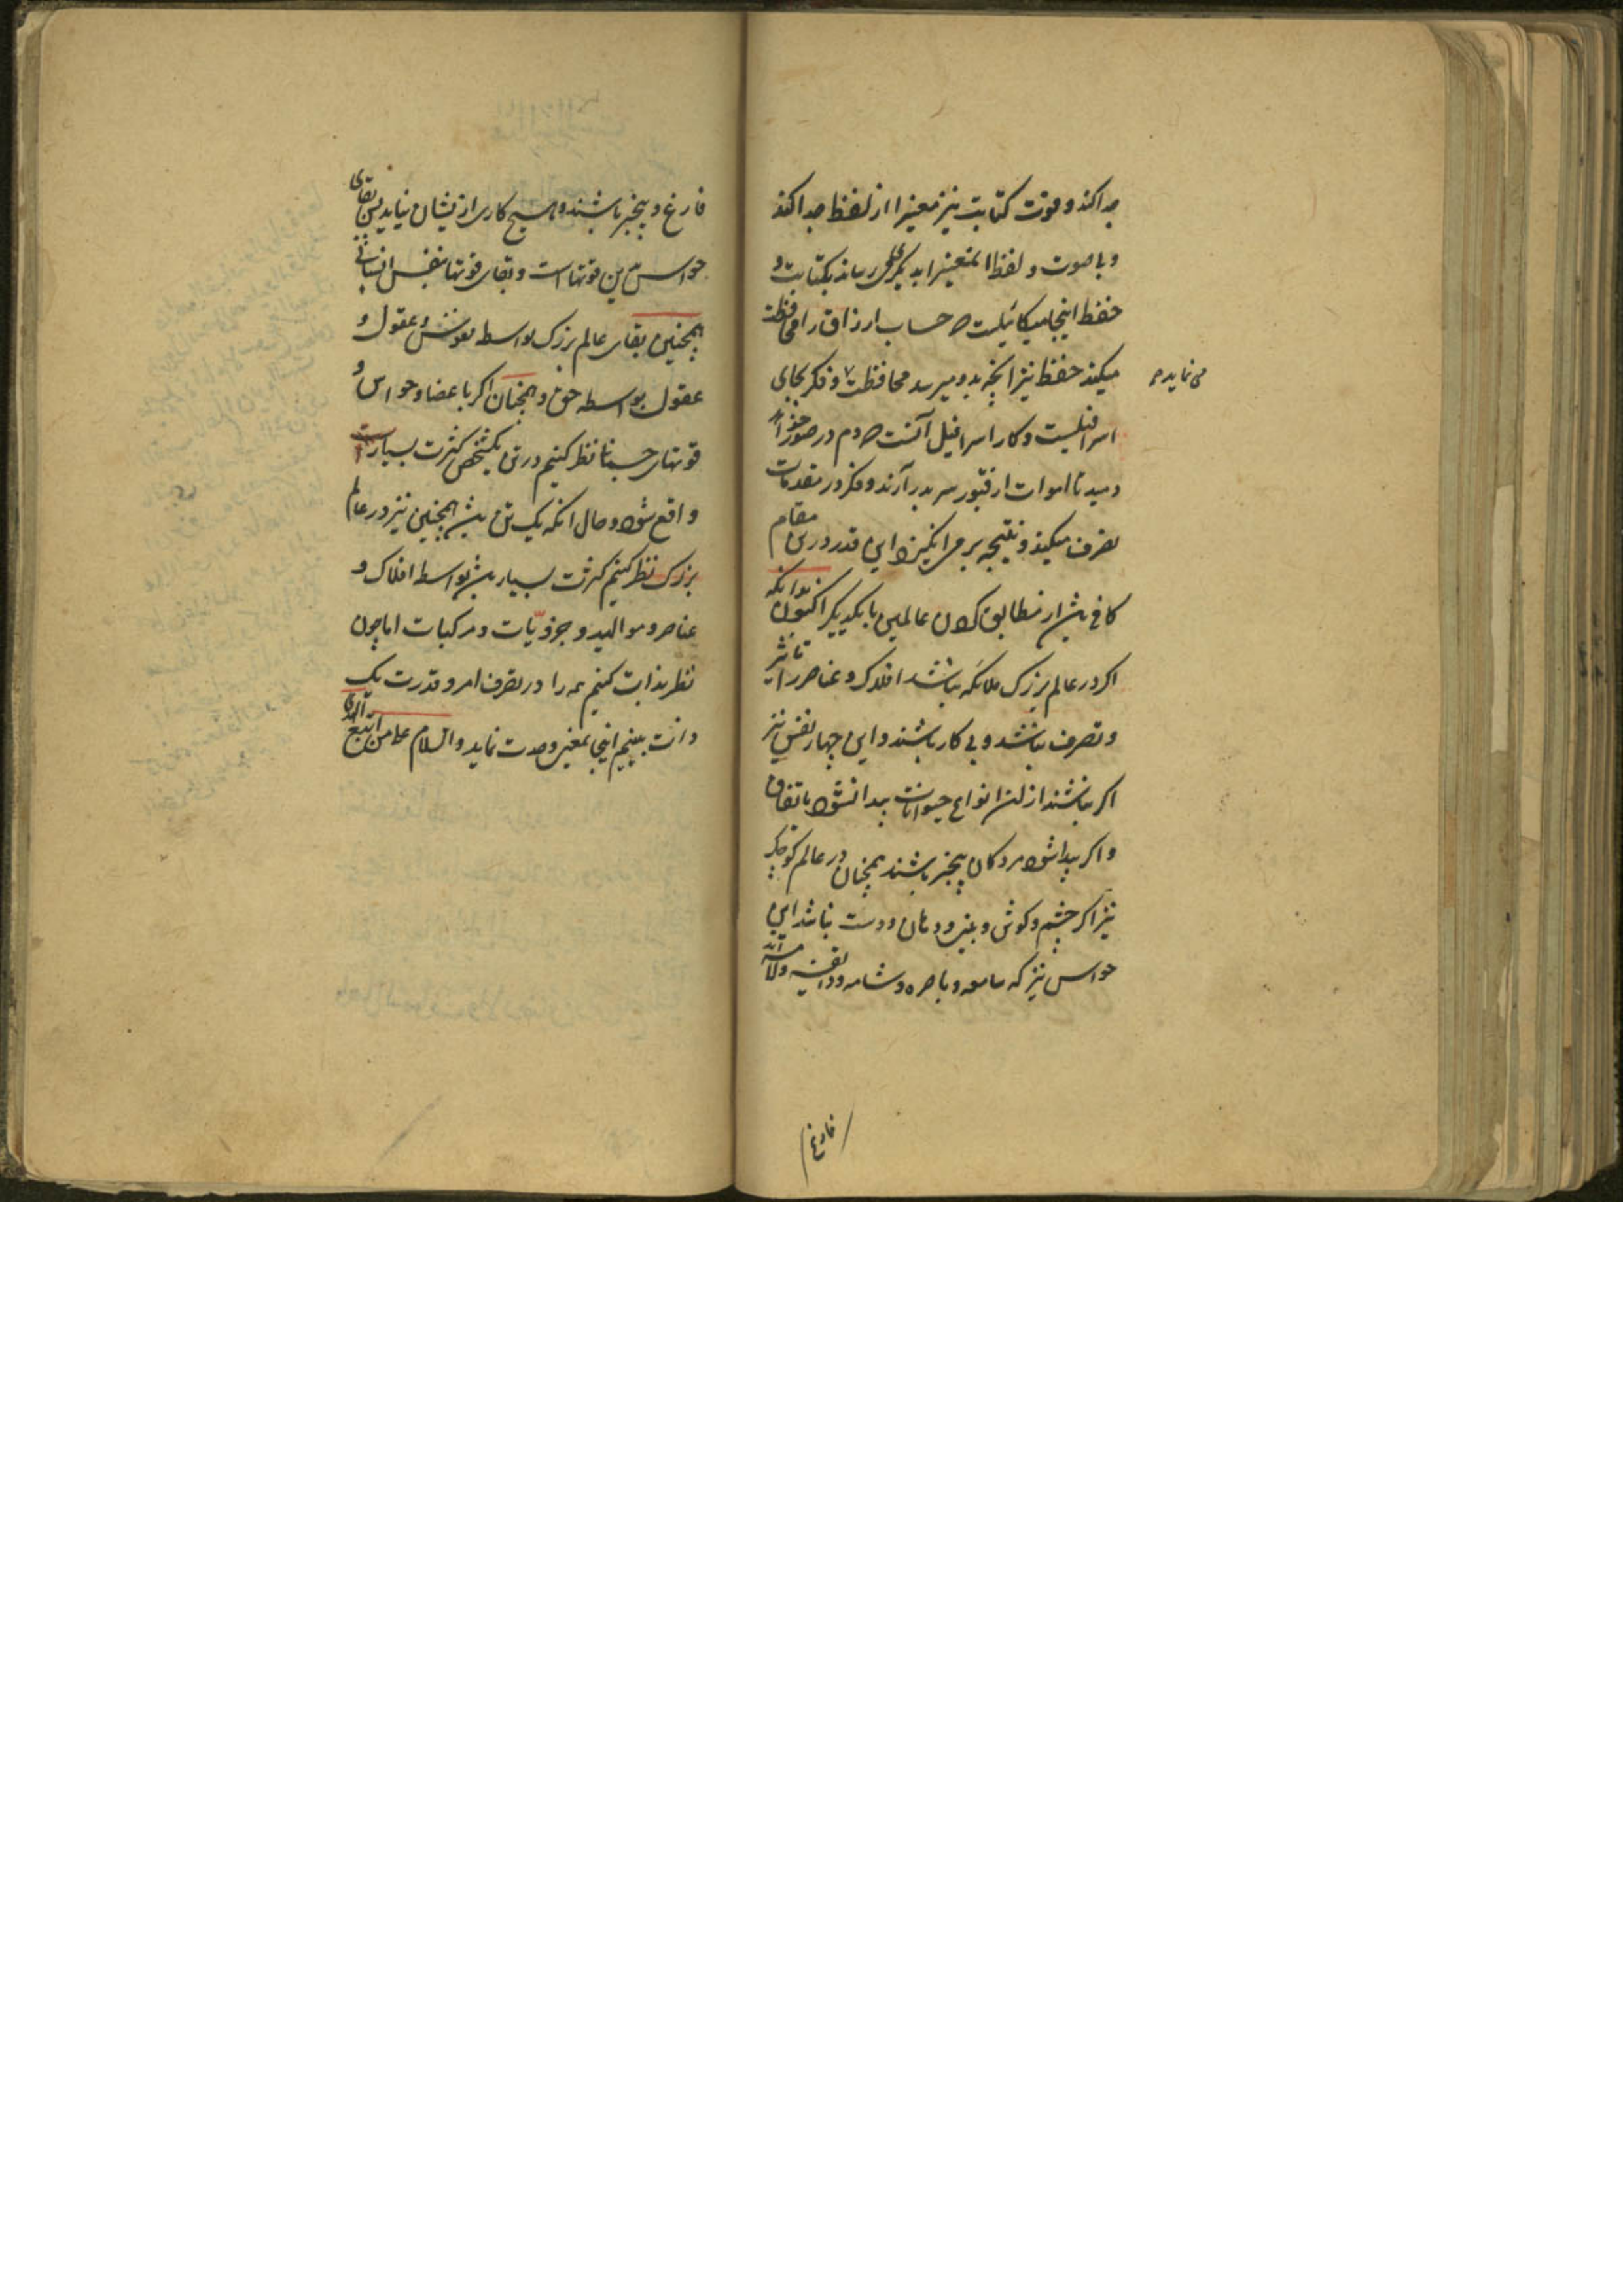 جدا کند و قوت کتابت نیز معنیرا از لفظ جدا کند
و بی صوت و لفظ المعنیرا بدیگری رساند بکتابت و
حفظ اینجا میکائیلست که حساب ارزاق را محافظت
میکند حفظ نیز انچه بدو میرسد محافظت و فکر بجای
می نماید
اسرافیلست و کار اسرافیل آنست که دم در صور
دمید تا اموات از قبور سر بدر آرند و فکر در مقدمات
تصرف میکند و نتیجه بر می انگیزد این قدر درین مقام
کافی باشد از مطابق کردن عالمین با یکدیگر اکنون بدانکه
اکر در عالم بزرک ملائکه نباشند افلاک و عناصر را تاثیر
و تصرف نباشد و بی کار باشند و این چهار نفس نیز
اکر نباشند از ان انواع حیوانات پیدا نشود باتفاق
و اکر پیدا شود مردکان بیخبر باشند همچنان در عالم کوچک
نیز اکر چشم و کوش و بینی و دهان و دست نباشد این
حواس نیز که سامعه و باصره و شامه و ذائقه و لامسه اند
فارغ
فارغ و بیخبر باشند و هیچ کاری ازیشان نیاید پس بقای
حواس بدین قوتها است و بقای قوتها بنفس انسانی
همچنین بقای عالم بزرک بواسطه نفوس و عقول و
عقول بواسطه حق و همچنان اکر با عضا و حواس و
قوتهای جسمانی نظر کنیم در تن یکشخص کثرت بسیار
واقع شود و حال انکه یک تن باشد همچنین نیز در عالم
بزرک نظر کنیم کثرت بسیار باشد بواسطه افلاک و
عناصر و موالید و جزویّات و مرکبات اما چون
نظر بذات کنیم همه را در تصرف امر و قدرت یک
ذات بینیم اینجا معنی وحدت نماید والسلام علی من اتبع الهدی